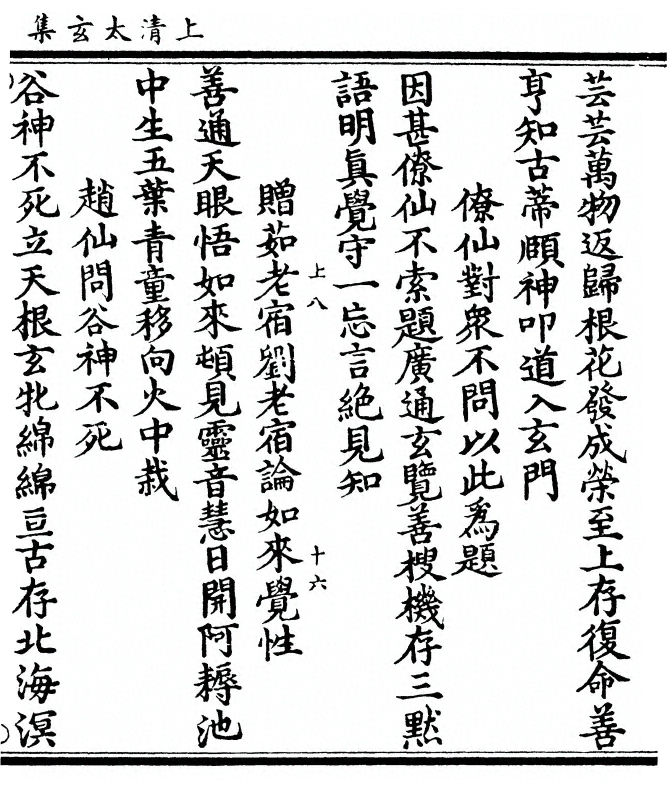 上清太玄集
芸芸萬物返歸根花發成榮至上存復命善
亨知古蒂頤神叩道入玄門
僚仙對衆不問以此爲題
因甚僚仙不索題廣通玄覽善搜機存三默
語明眞覺守一忘言絶見知
贈茹老宿劉老宿論如來覺性
上八
十六
善通天眼悟如來頓見靈音慧日開阿耨池
中生五葉青童移向火中栽
趙仙問谷神不死
谷神不死立天根玄牝綿綿亘古存北海溟